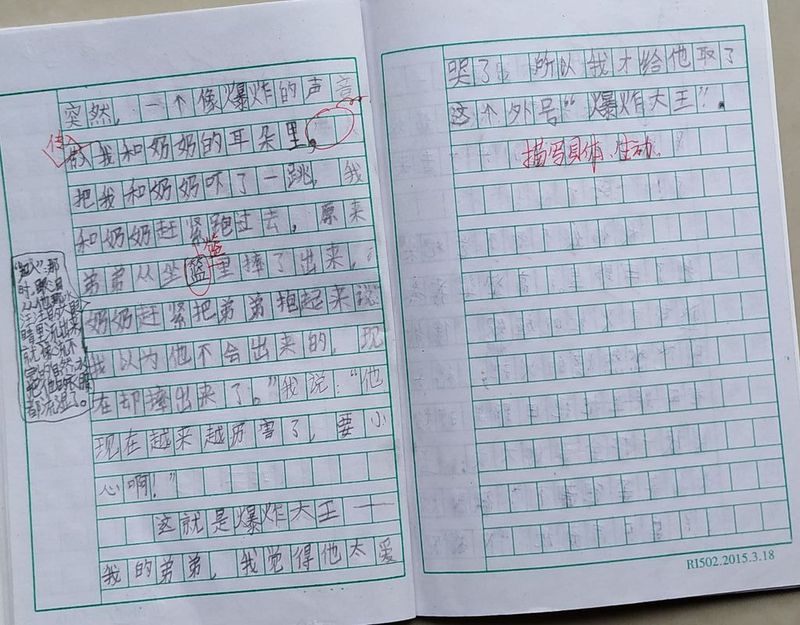 突然，一个像爆炸的声音
传
我和奶奶的耳朵里。
把我和奶奶吓了一跳，我
和奶奶赶紧跑过去，原来
弟弟从坐篮里摔了出来，
奶奶赶紧把弟弟抱起来说
我以为他不会出来的，现
在却摔出来了。”我说：“他
现在越来越厉害了，要小
心啊！”
这就是爆炸大王一
我的弟弟，我觉得他太爱
时眼泪
睛里流出来
就像流不
完的自来水
把他的
都流湿了。
哭了 所以我才给他取了
这个外号“爆炸大王”。
描写具体、生动。
R1502.2015.3.18